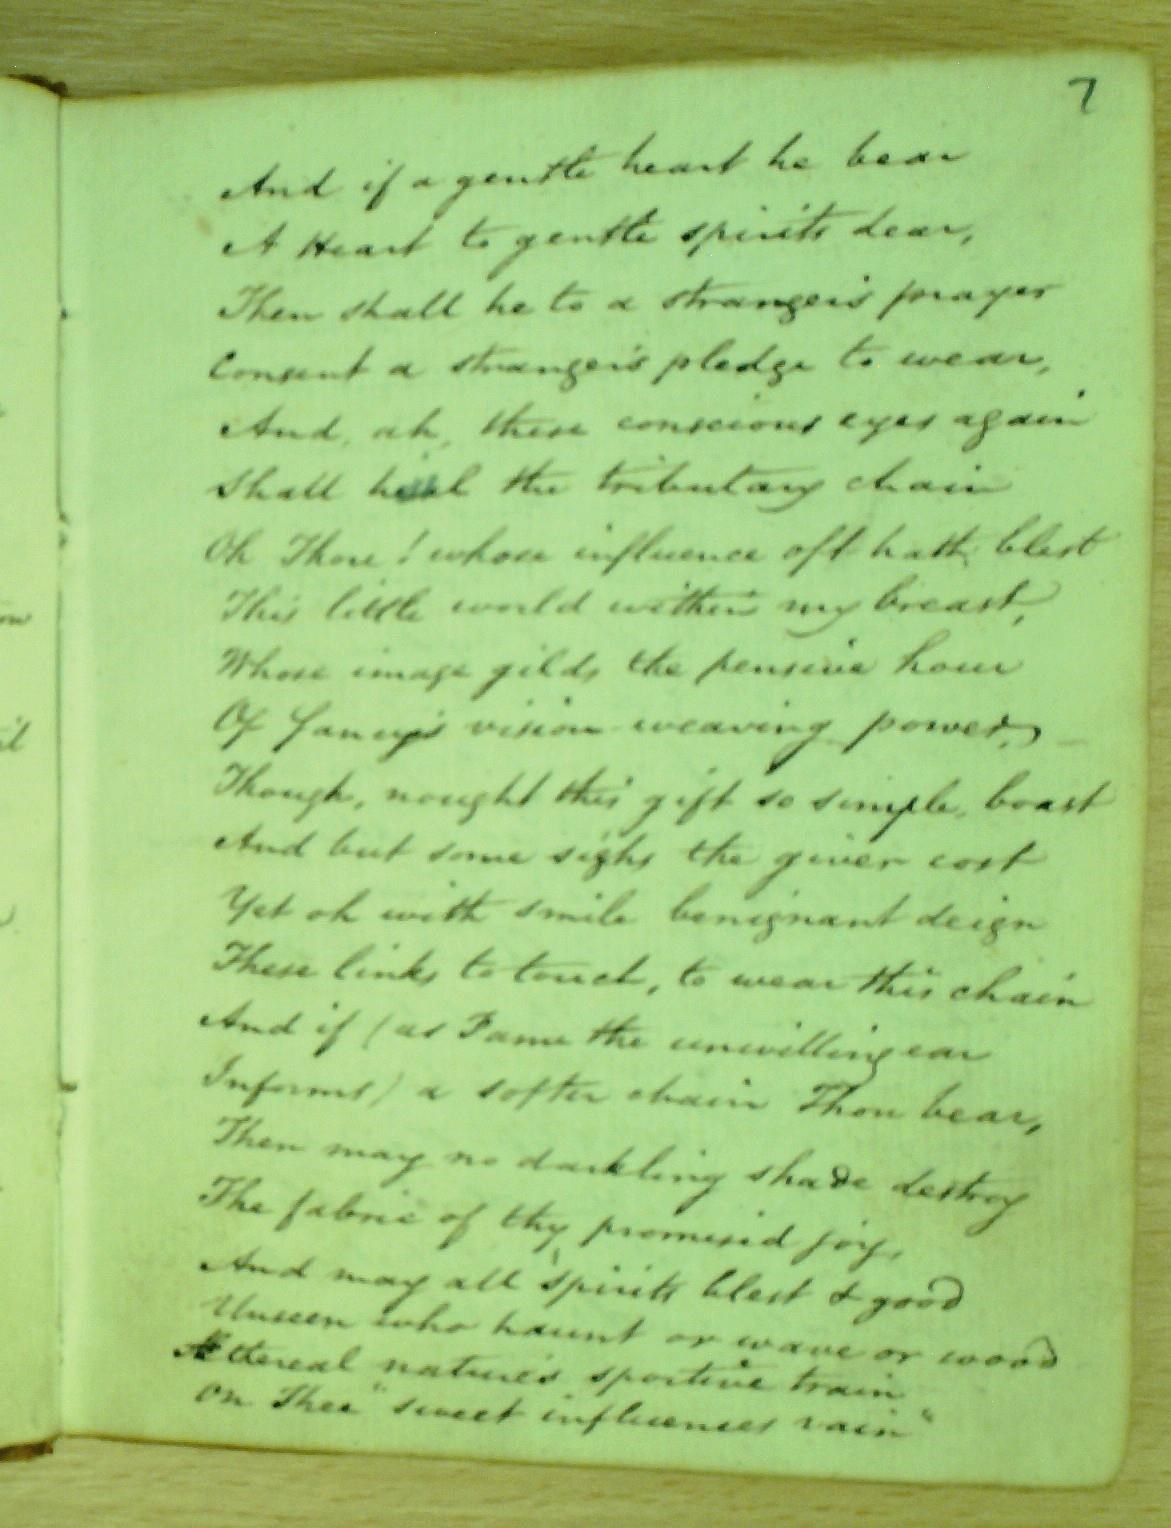 7
And if a gentle heart he bear
A Heart to gentle spirits dear,
Then shall he to a stranger's prayer
Consent a stranger's pledge to wear,
And, ah, these conscious eyes again
Shall hail the tributary chain
Oh Thou! whose influence oft hath blest
This little world within my breast,
Whose image gilds the pensive hour
Of fancy's vision-weaving power,
Though, nought this gift so simple, boast
And but some sighs the giver cost
Yet oh with smile benignant deign
These links to touch, to wear this chain
And if (as Fame the unwilling ear
Informs) a softer chain Thou bear,
Then may no darkling shade destroy
The fabric of thy promised joy,
And may all spirits blest & good
Unseen who haunt or wave or wood
Ætherial nature's sportive train
On Thee "sweet influences rain"